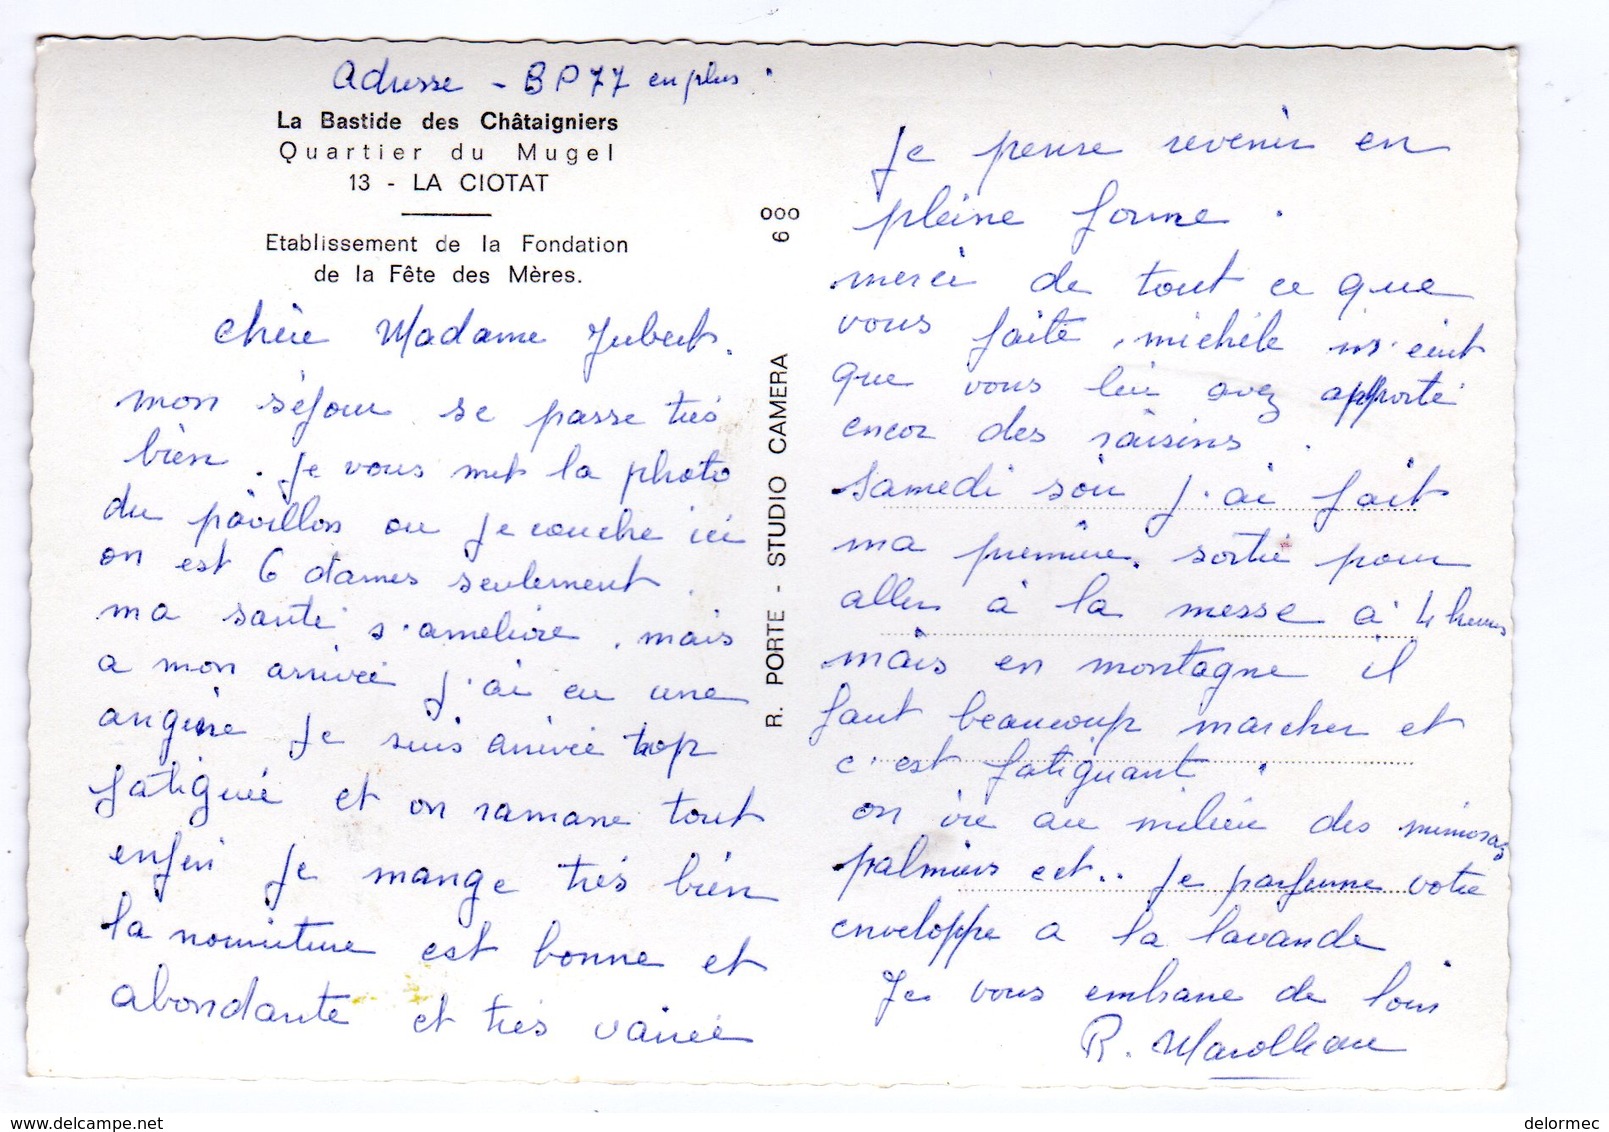 Adresse - BP77 en plus.
La Bastide des Châtaigniers
Quartier du Mugel
13 - LA CIOTAT
Etablissement de la Fondation
de la Fête des Mères.
chère Madame Jubert.
mon séjour se passe très
bien. Je vous met la photo
du pavillon ou je couche ici
on est 6 dames seulement.
ma santé s'ameliore, mais
a mon arrivée j'ai eu une
angine je suis arrivée trop
fatiguée et on ramane tout
enfin je mange très bien
la nourriture est bonne et
abondante et très variée
000
6
R. PORTE - STUDIO CAMERA
Je pense revenir en
pleine forme.
merci de tout ce que
vous faite, michèle m'ecrit
que vous lui avez apporté
encor des raisins.
Samedi soir j'ai fait
ma première sortie pour
aller à la messe à 4 heures
mais en montagne il
faut beaucoup marcher et
c'est fatiguant.
on vie au milieu des mimosas
palmiers ect.. je parfume votre
enveloppe a la lavande
Je vous embrasse de loin
R. Marolleau
delormec